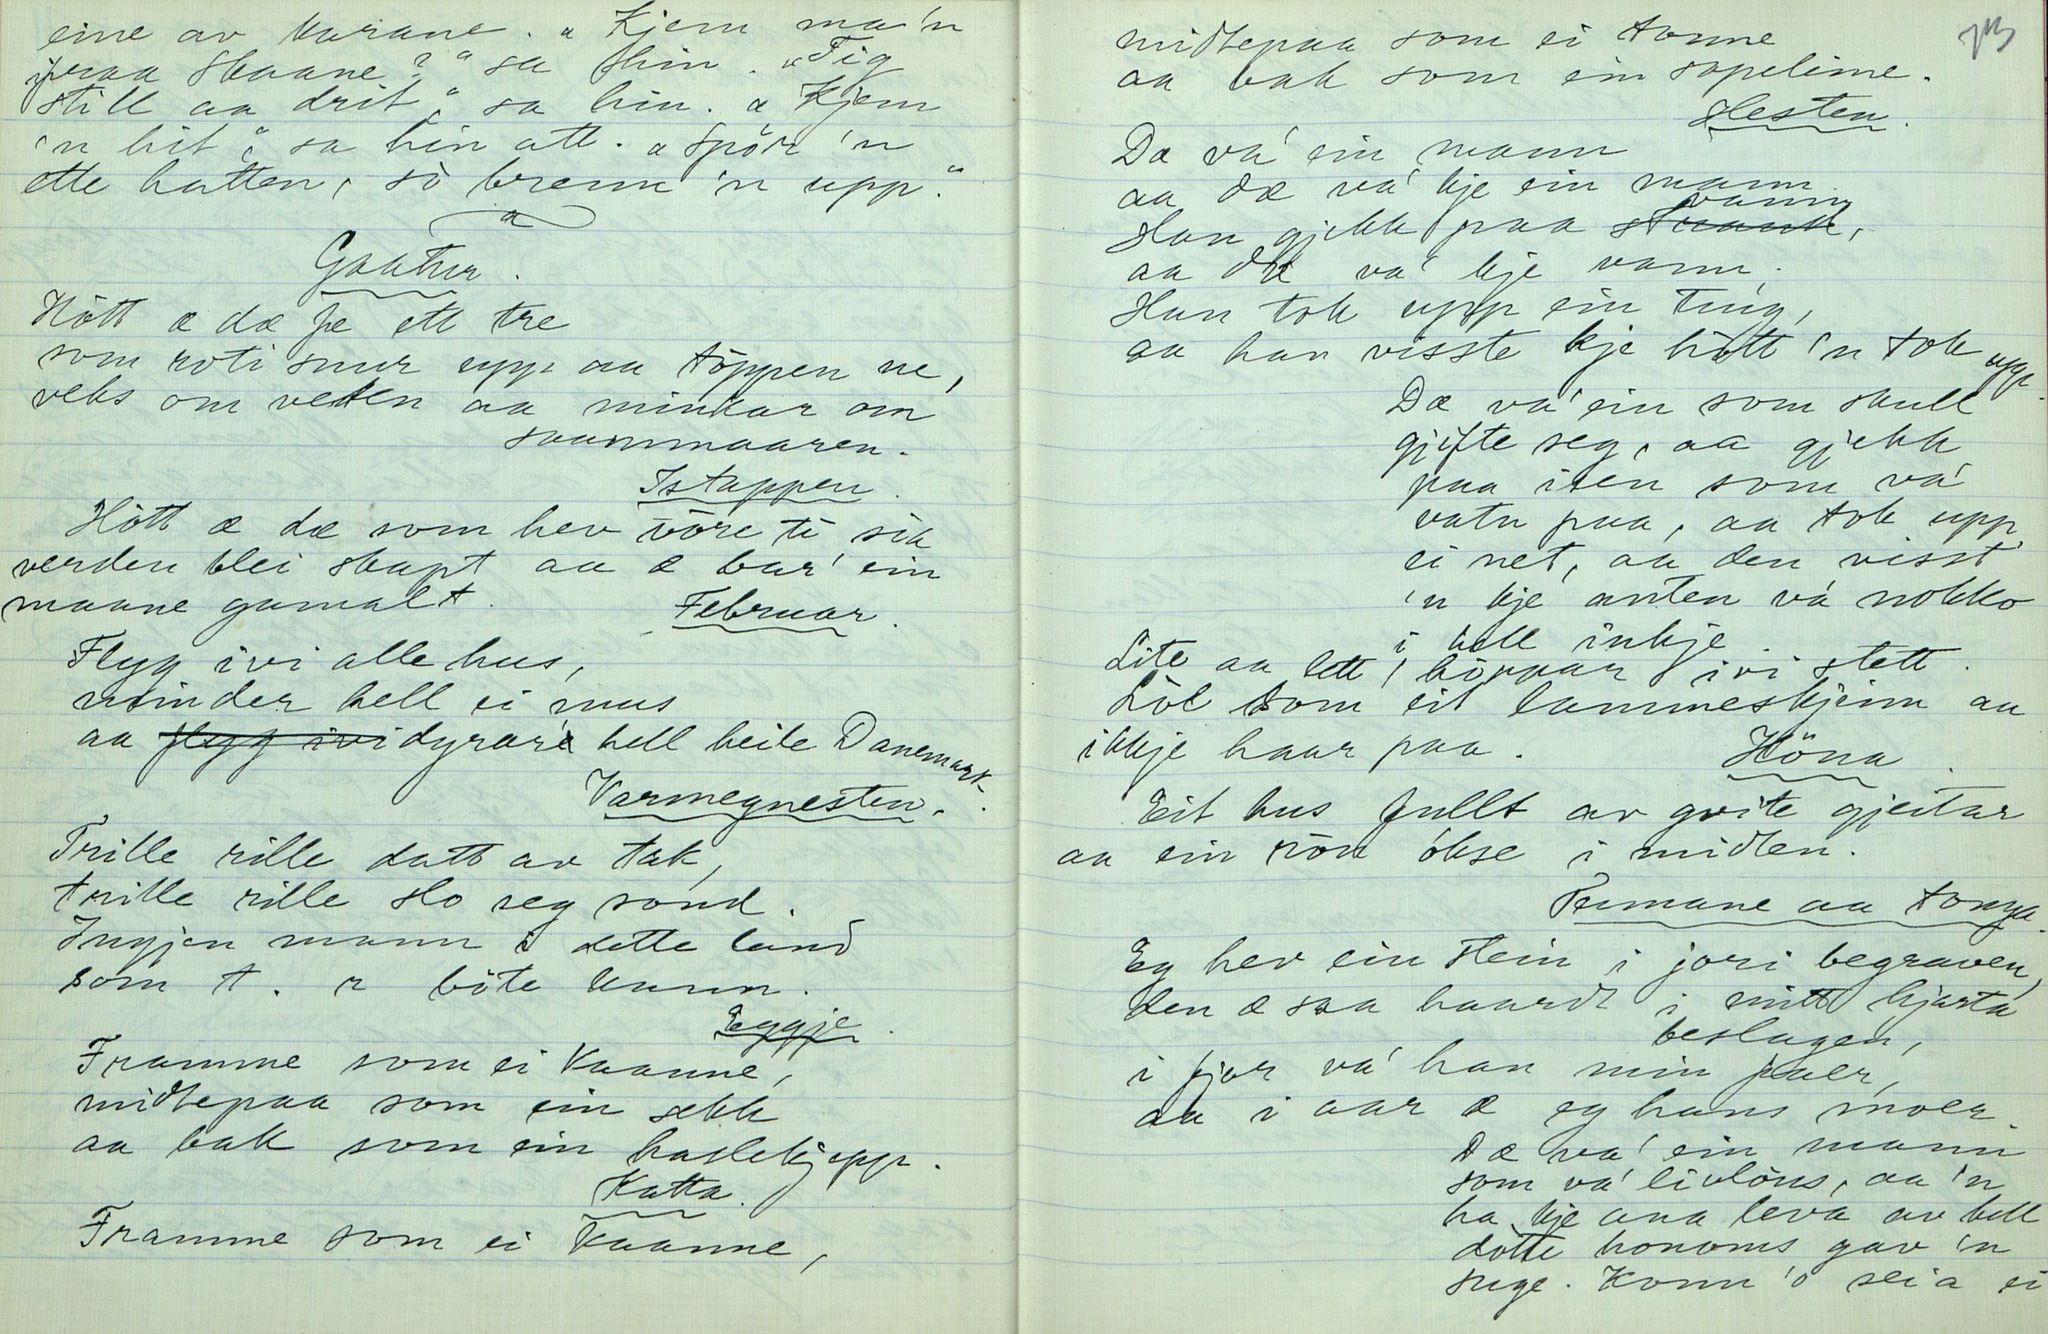 eine av karane. „Kjem ma'n
ifraa Skaane?“ sa hin. „Tig
still aa drit“, sa hin. „Kjem
'n hit“, sa hin att. „Spör 'n
ette hatten, so brenn 'n upp.“
Gaatur.
Hött æ dæ fe ett tre
som roti snur upp aa töppen ne,
veks om veten aa minkar om
saammaaren.
Istappen.
Hött æ dæ som hev vöre ti sia
verden blei skapt aa æ bar' ein
maane gamalt.
Februar.
Flyg ivi alle hus,
minder hell ei mus
aa flyg ivi dyrar'e hell heile Danemark.
Varmegnesten.
Trille rille datt av tak,
trille rille slo seg sond.
Ingjen mann i dette land
som t. r böte kann.
Eggje.
Framme som ei kaanne,
midtepaa som ein sekk
aa bak som ein haslekjepp.
Katta.
Framme som ei kaanne,
midtepaa som ei tonne
aa bak som ein sopelime.
Hesten.
Dæ va' ein mann
aa dæ va' kje ein mann.
Han gjekk paa vann,
aa dæ va' kje vann.
Han tok upp ein ting,
aa han visste kje hött 'n tok upp.
Dæ va' ein som skull
gjifte seg, aa gjekk
paa isen som va'
vatn paa, aa tok upp
ei net, aa den visst'
'n kje anten va' nokko
i hell inkje.
Lite aa lett, höppar ivi stett.
Löe som eit lammeskjinn aa
ikkje haar paa.
Höna.
Eit hus fullt av gvite gjeitar
aa ein röu okse i midten.
Tennane aa tonga.
Eg hev ein stein i jori begraven,
den æ saa haardt i mitt hjarta
beslagen,
i fjor va' han min faer,
aa i aar æ eg hans moer.
Dæ va' ein mann
som va' livlöus, aa 'n
ha kje ana leva av hell
dotte honoms gav 'n
suge. Konn'o sei a ei